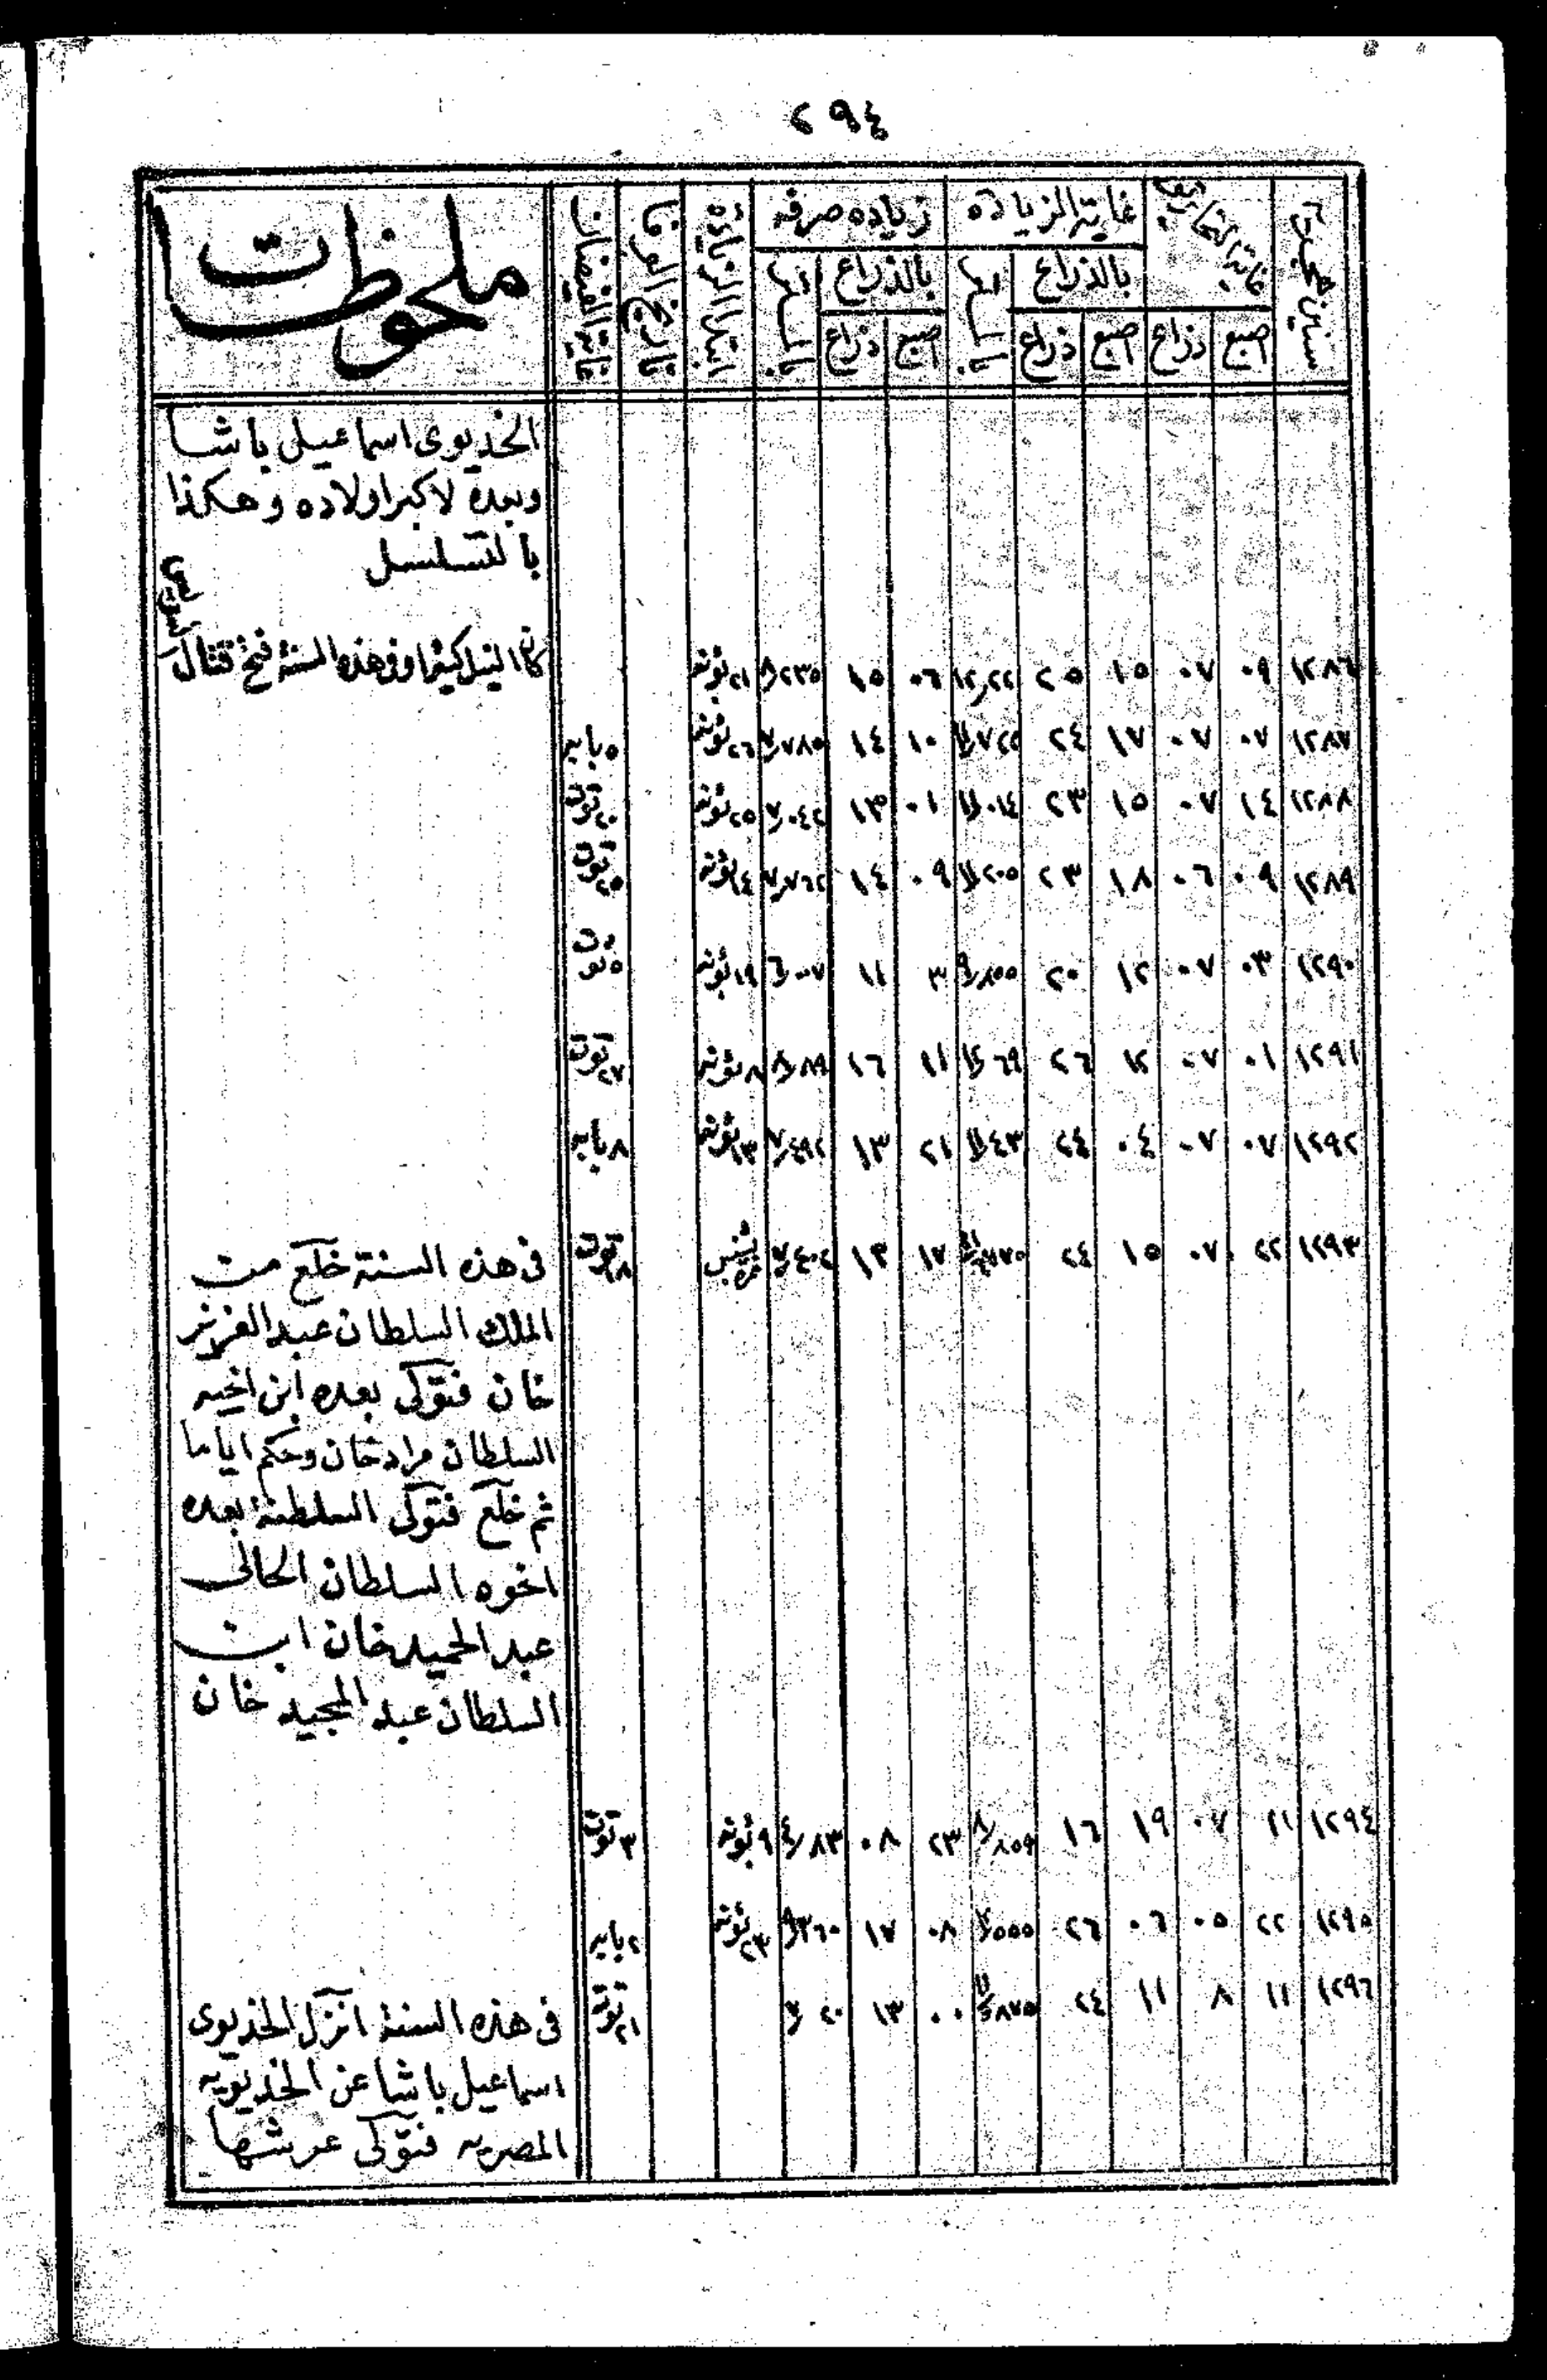 ٢٩٤
سنين هجريه
غاية التحاريق
غاية الزياده
زياده صرفه
ابتدا الزياده
تاريخ الوفا
غاية الفيضان
ملحوظات
بالذراع
بالذراع
اصبع ذراع اصبع ذراع اصبع ذراع
الخديوى اسماعيل باشا
وبعده لاكبر اولاده وهكذا
بالتسلسل
١٢٨٦ ٠٩ ٠٧ ١٥ ٢٥ ١٢٫٢٢ ٠٦ ١٥ ٨٫٢٣٥ ٢١ بؤنه كان النيل كثيرا وفى هذه السنة فتح قتال
السويس
١٢٨٧ ٠٧ ٠٧ ١٧ ٢٤ ١١٫٧٢٢ ١٠ ١٤ ٧٫٧٨٥ ٢٦ بؤنه ٥ بابه
١٢٨٨ ١٤ ٠٧ ١٥ ٢٣ ١١٫٠١٤ ٠١ ١٣ ٧٫٠٤٢ ٢٥ بؤنه ٢٠ توت
١٢٨٩ ٠٩ ٠٦ ١٨ ٢٣ ١١٫٢٠٥ ٠٩ ١٤ ٧٫٧٦٢ ١٤ بؤنه ٢٥ توت
١٢٩٠ ٠٣ ٠٧ ١٢ ٢٠ ٩٫٨٥٥ ٣ ١١ ٦٫٠٠٧ ١٩ بؤنه ٥ توت
١٢٩١ ٠١ ٠٧ ١٢ ٢٦ ١٢٫٦٩ ١١ ١٦ ٨٫٨٩ ٨ بؤنه ٢٧ توت
١٢٩٢ ٠٧ ٠٧ ٠٤ ٢٤ ١١٫٤٣ ٢١ ١٣ ٧٫٤٩٢ ١٣ بؤنه ٨ بابه
١٢٩٣ ٢٢ ٠٧ ١٥ ٢٤ ١٧ ١٣ ٧٫٤٠٢ بشنس ١٨ توت فى هذه السنة خلع من
الملك السلطان عبد العزيز
خان فتولى بعده ابن اخيه
السلطان مراد خان وحكم اياما
ثم خلع فتولى السلطنة بعده
اخوه السلطان الحالى
عبد الحميد خان ابن
السلطان عبد المجيد خان
١٢٩٤ ١١ ٠٧ ١٩ ١٦ ٨٫٨٥٩ ٢٣ ٠٨ ٤٫٨٣ ٩ بؤنه ٣ توت
١٢٩٥ ٢٢ ٠٥ ٠٦ ٢٦ ٠٨ ١٧ ٩٫٣٦٠ ٢٣ بؤنه ٢ بابه
١٢٩٦ ١١ ٨ ١١ ٢٤ ٠٠ ١٣ ٢١ توت فى هذه السنة انزل الخديوى
اسماعيل باشا عن الخديويه
المصريه فتولى عرشها